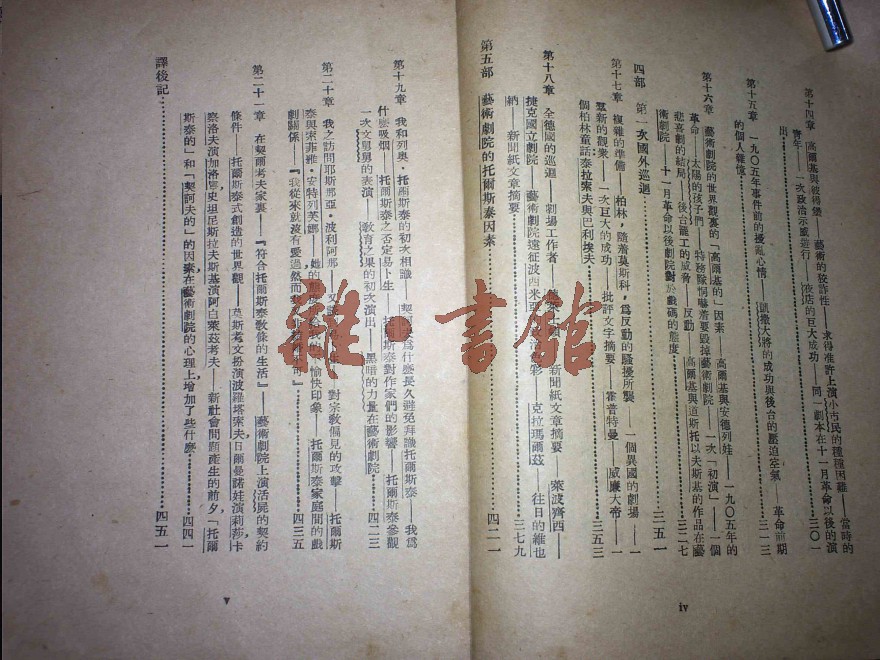 第十四章 高爾基與彼得堡——藝術的狡詐性——求得准許上演小市民的種種困難——當時的
青年——一次政治示威遊行——夜店的巨大成功——同一劇本在十一月革命以後的演
出……三〇一
第十五章 一九〇五年事件前的擾亂心情——凱撒大將的成功與後台的壓迫空氣——革命前期
的個人雜憶……三一三
第十六章 藝術劇院的世界觀裏的「高爾基的」因素——高爾基與安德列娃——一九〇五年的
革命——太陽的孩子們——特務隊恫嚇着要毀掉藝術劇院——一次「初演」——一個
悲喜劇的結局——後台罷工的威脅——反動——高爾基與道斯托以夫斯基的作品在藝
術劇院——十一月革命以後劇院對於戲碼的態度……三二七
四部 第一次國外巡迴……三五一
第十七章 複雜的準備——柏林，隨着莫斯科，爲反動的騷擾所襲——一個異國的劇場——一
羣新的觀衆——一次巨大的成功——批評文字摘要——霍普特曼——威廉大帝——一
個柏林童話：泰拉索夫與巴利埃夫……三五三
第十八章 全德國的巡迴——劇場工作者——新聞紙文章摘要——萊波齊西——
捷克國立劇院——藝術劇院遠征波西米亞——克拉瑪爾茲——往日的維也
納——新聞紙文章摘要……三七九
第五部 藝術劇院的托爾斯泰因素……四二一
第十九章 我和列奧·托爾斯泰的初次相識——契訶夫爲什麼長久避免拜識托爾斯泰——我爲
什麼吸烟——托爾斯泰之否定易卜生——托爾斯泰對作家們的影響——托爾斯泰參觀
一次文舅舅的表演——教育之果的初次演出——黑暗的力量在藝術劇院……四二三
第二十章 我之訪問耶斯那亞·波利阿那——對宗教偏見的攻擊——托爾斯
泰與索菲雅·安特列芙娜——她的——愉快印象——托爾斯泰家庭間的戲
劇關係——「我從來就沒有愛過……」……四三五
第二十一章 在契爾考夫家裏——「符合托爾斯泰敎條的生活」——藝術劇院上演活屍的契約
條件——托爾斯泰式創造的世界觀——莫斯考文扮演波羅塔索夫日爾曼諾娃演莉莎卡
察洛夫演加洛寧，史坦尼斯拉夫斯基演阿白萊茲考夫——新社會問題產生的前夕「托爾
斯泰的」和「契訶夫的」的因素，在藝術劇院的心理上，增加了些什麼……四四一
譯後記……四五一
iv
v
雜·書館